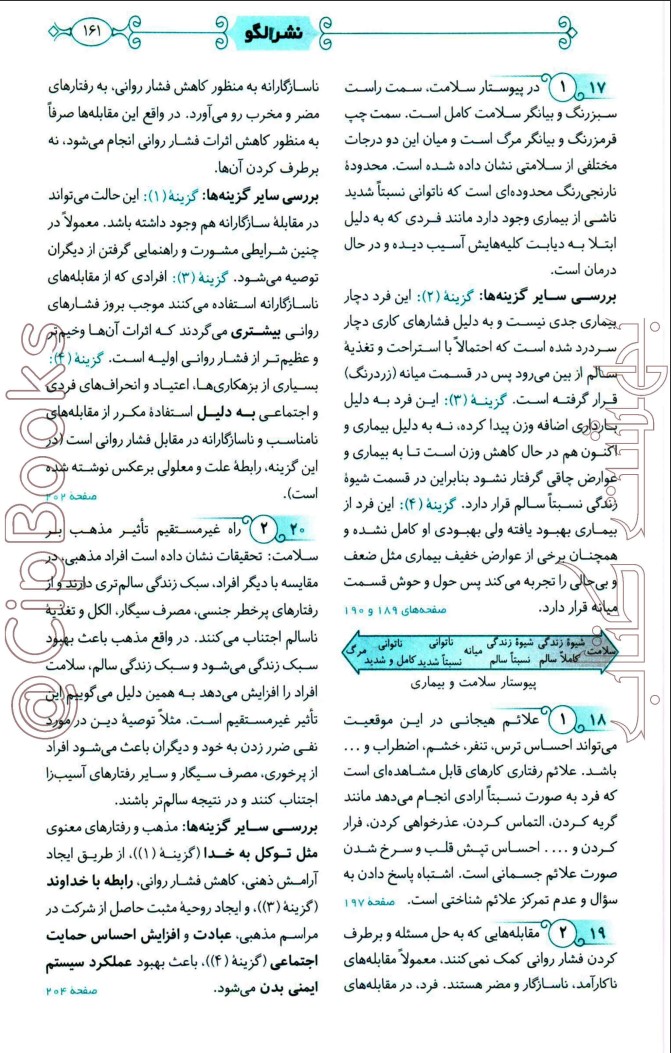 نشرالگو
۱۶۱
۱۷ ۱ در پیوستار سلامت، سمت راست
سبزرنگ و بیانگر سلامت کامل است. سمت چپ
قرمزرنگ و بیانگر مرگ است و میان این دو درجات
مختلفی از سلامتی نشان داده شده است. محدودهٔ
نارنجی‌رنگ محدوده‌ای است که ناتوانی نسبتاً شدید
ناشی از بیماری وجود دارد مانند فردی که به دلیل
ابتلا به دیابت کلیه‌هایش آسیب دیده و در حال
درمان است.
بررسی سایر گزینه‌ها: گزینهٔ (۲): این فرد دچار
بیماری جدی نیست و به دلیل فشارهای کاری دچار
سردرد شده است که احتمالاً با استراحت و تغذیهٔ
سالم از بین می‌رود پس در قسمت میانه (زردرنگ)
قرار گرفته است. گزینهٔ (۳): این فرد به دلیل
بارداری اضافه وزن پیدا کرده، نه به دلیل بیماری و
اکنون هم در حال کاهش وزن است تا به بیماری و
عوارض چاقی گرفتار نشود بنابراین در قسمت شیوهٔ
زندگی نسبتاً سالم قرار دارد. گزینهٔ (۴): این فرد از
بیماری بهبود یافته ولی بهبودی او کامل نشده و
همچنان برخی از عوارض خفیف بیماری مثل ضعف
و بی‌حالی را تجربه می‌کند پس حول و حوش قسمت
میانه قرار دارد. صفحه‌های ۱۸۹ و ۱۹۰
سلامت شیوهٔ زندگی کاملاً سالم شیوهٔ زندگی نسبتاً سالم میانه ناتوانی نسبتاً شدید ناتوانی کامل و شدید مرگ
پیوستار سلامت و بیماری
۱۸ ۱ علائم هیجانی در این موقعیت
می‌تواند احساس ترس، تنفر، خشم، اضطراب و ...
باشد. علائم رفتاری کارهای قابل مشاهده‌ای است
که فرد به صورت نسبتاً ارادی انجام می‌دهد مانند
گریه کردن، التماس کردن، عذرخواهی کردن، فرار
کردن و .... احساس تپش قلب و سرخ شدن
صورت علائم جسمانی است. اشتباه پاسخ دادن به
سؤال و عدم تمرکز علائم شناختی است. صفحهٔ ۱۹۷
۱۹ ۲ مقابله‌هایی که به حل مسئله و برطرف
کردن فشار روانی کمک نمی‌کنند، معمولاً مقابله‌های
ناکارآمد، ناسازگار و مضر هستند. فرد، در مقابله‌های
ناسازگارانه به منظور کاهش فشار روانی، به رفتارهای
مضر و مخرب رو می‌آورد. در واقع این مقابله‌ها صرفاً
به منظور کاهش اثرات فشار روانی انجام می‌شود، نه
برطرف کردن آن‌ها.
بررسی سایر گزینه‌ها: گزینهٔ (۱): این حالت می‌تواند
در مقابلهٔ سازگارانه هم وجود داشته باشد. معمولاً در
چنین شرایطی مشورت و راهنمایی گرفتن از دیگران
توصیه می‌شود. گزینهٔ (۳): افرادی که از مقابله‌های
ناسازگارانه استفاده می‌کنند موجب بروز فشارهای
روانی بیشتری می‌گردند که اثرات آن‌ها وخیم‌تر
و عظیم‌تر از فشار روانی اولیه است. گزینهٔ (۴):
بسیاری از بزهکاری‌ها، اعتیاد و انحراف‌های فردی
و اجتماعی به دلیل استفادهٔ مکرر از مقابله‌های
نامناسب و ناسازگارانه در مقابل فشار روانی است (در
این گزینه، رابطهٔ علت و معلولی برعکس نوشته شده
است). صفحهٔ ۲۰۲
۲۰ ۲ راه غیرمستقیم تأثیر مذهب بر
سلامت: تحقیقات نشان داده است افراد مذهبی، در
مقایسه با دیگر افراد، سبک زندگی سالم‌تری دارند و از
رفتارهای پرخطر جنسی، مصرف سیگار، الکل و تغذیهٔ
ناسالم اجتناب می‌کنند. در واقع مذهب باعث بهبود
سبک زندگی می‌شود و سبک زندگی سالم، سلامت
افراد را افزایش می‌دهد به همین دلیل می‌گوییم این
تأثیر غیرمستقیم است. مثلاً توصیهٔ دین در مورد
نفی ضرر زدن به خود و دیگران باعث می‌شود افراد
از پرخوری، مصرف سیگار و سایر رفتارهای آسیب‌زا
اجتناب کنند و در نتیجه سالم‌تر باشند.
بررسی سایر گزینه‌ها: مذهب و رفتارهای معنوی
مثل توکل به خدا (گزینهٔ (۱))، از طریق ایجاد
آرامش ذهنی، کاهش فشار روانی، رابطه با خداوند
(گزینهٔ (۳))، و ایجاد روحیهٔ مثبت حاصل از شرکت در
مراسم مذهبی، عبادت و افزایش احساس حمایت
اجتماعی (گزینهٔ (۴))، باعث بهبود عملکرد سیستم
ایمنی بدن می‌شود. صفحهٔ ۲۰۴
@CipBooks